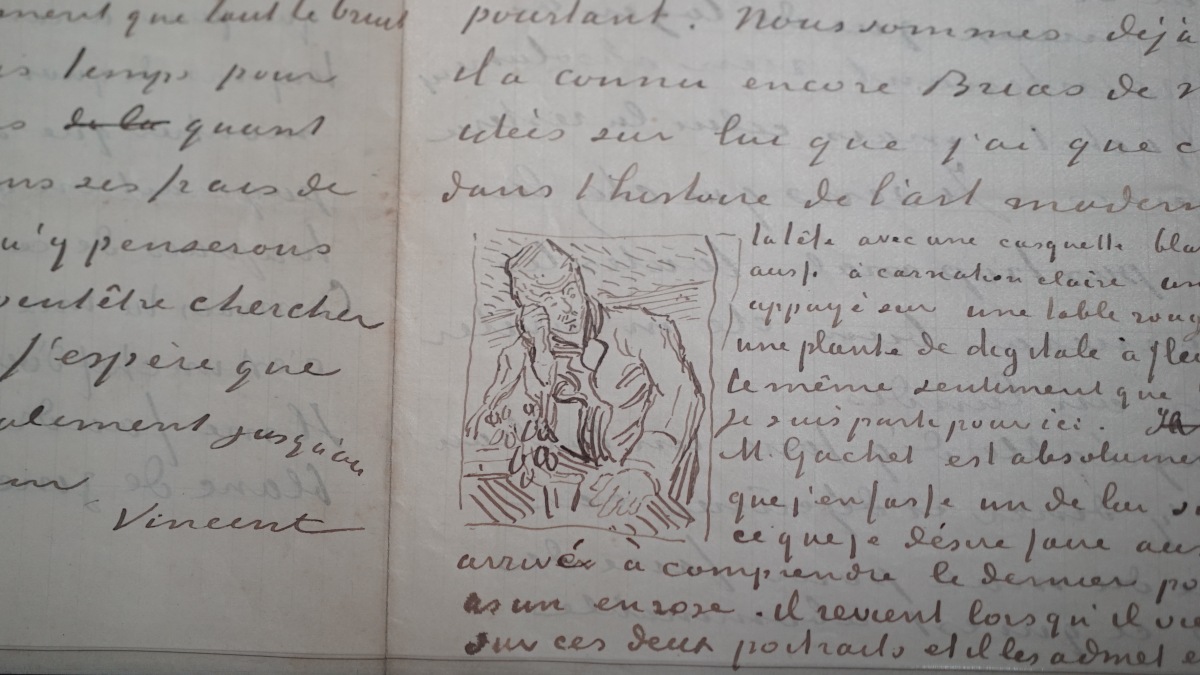 ment que tout le bruit
temps pour
de la quant
ses frais de
qu'y penserons
peutêtre chercher
J'espère que
alement jusqu'au
Vincent
pourtant. Nous sommes déjà
il a connu encore Brias de
idées sur lui que j'ai que
dans l'histoire de l'art modern
la tête avec une casquette bla
aussi à carnation claire un
appuyé sur une table roug
une plante de digitale à fleu
le même sentiment que
je suis parti pour ici. Ja
M. Gachet est absolumen
que j'en fasse un de lui
ce que je désire faire aus
arrivé à comprendre le dernier po
as un en rose. il revient lorsqu'il vie
sur ces deux portraits et il les admet e